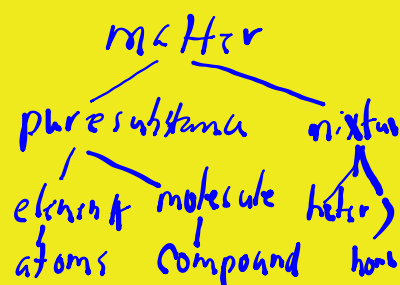 matter
pure substance mixture
element molecule heter
atoms compound homo